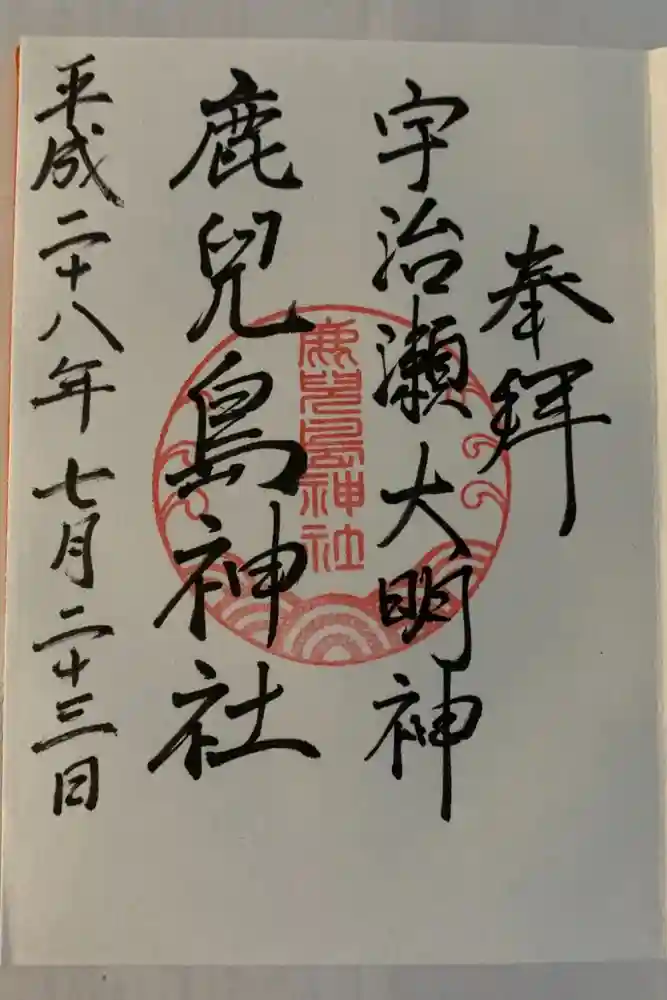 奉拝
宇治瀬大明神
鹿兒島神社
鹿兒島神社
平成二十八年七月二十三日